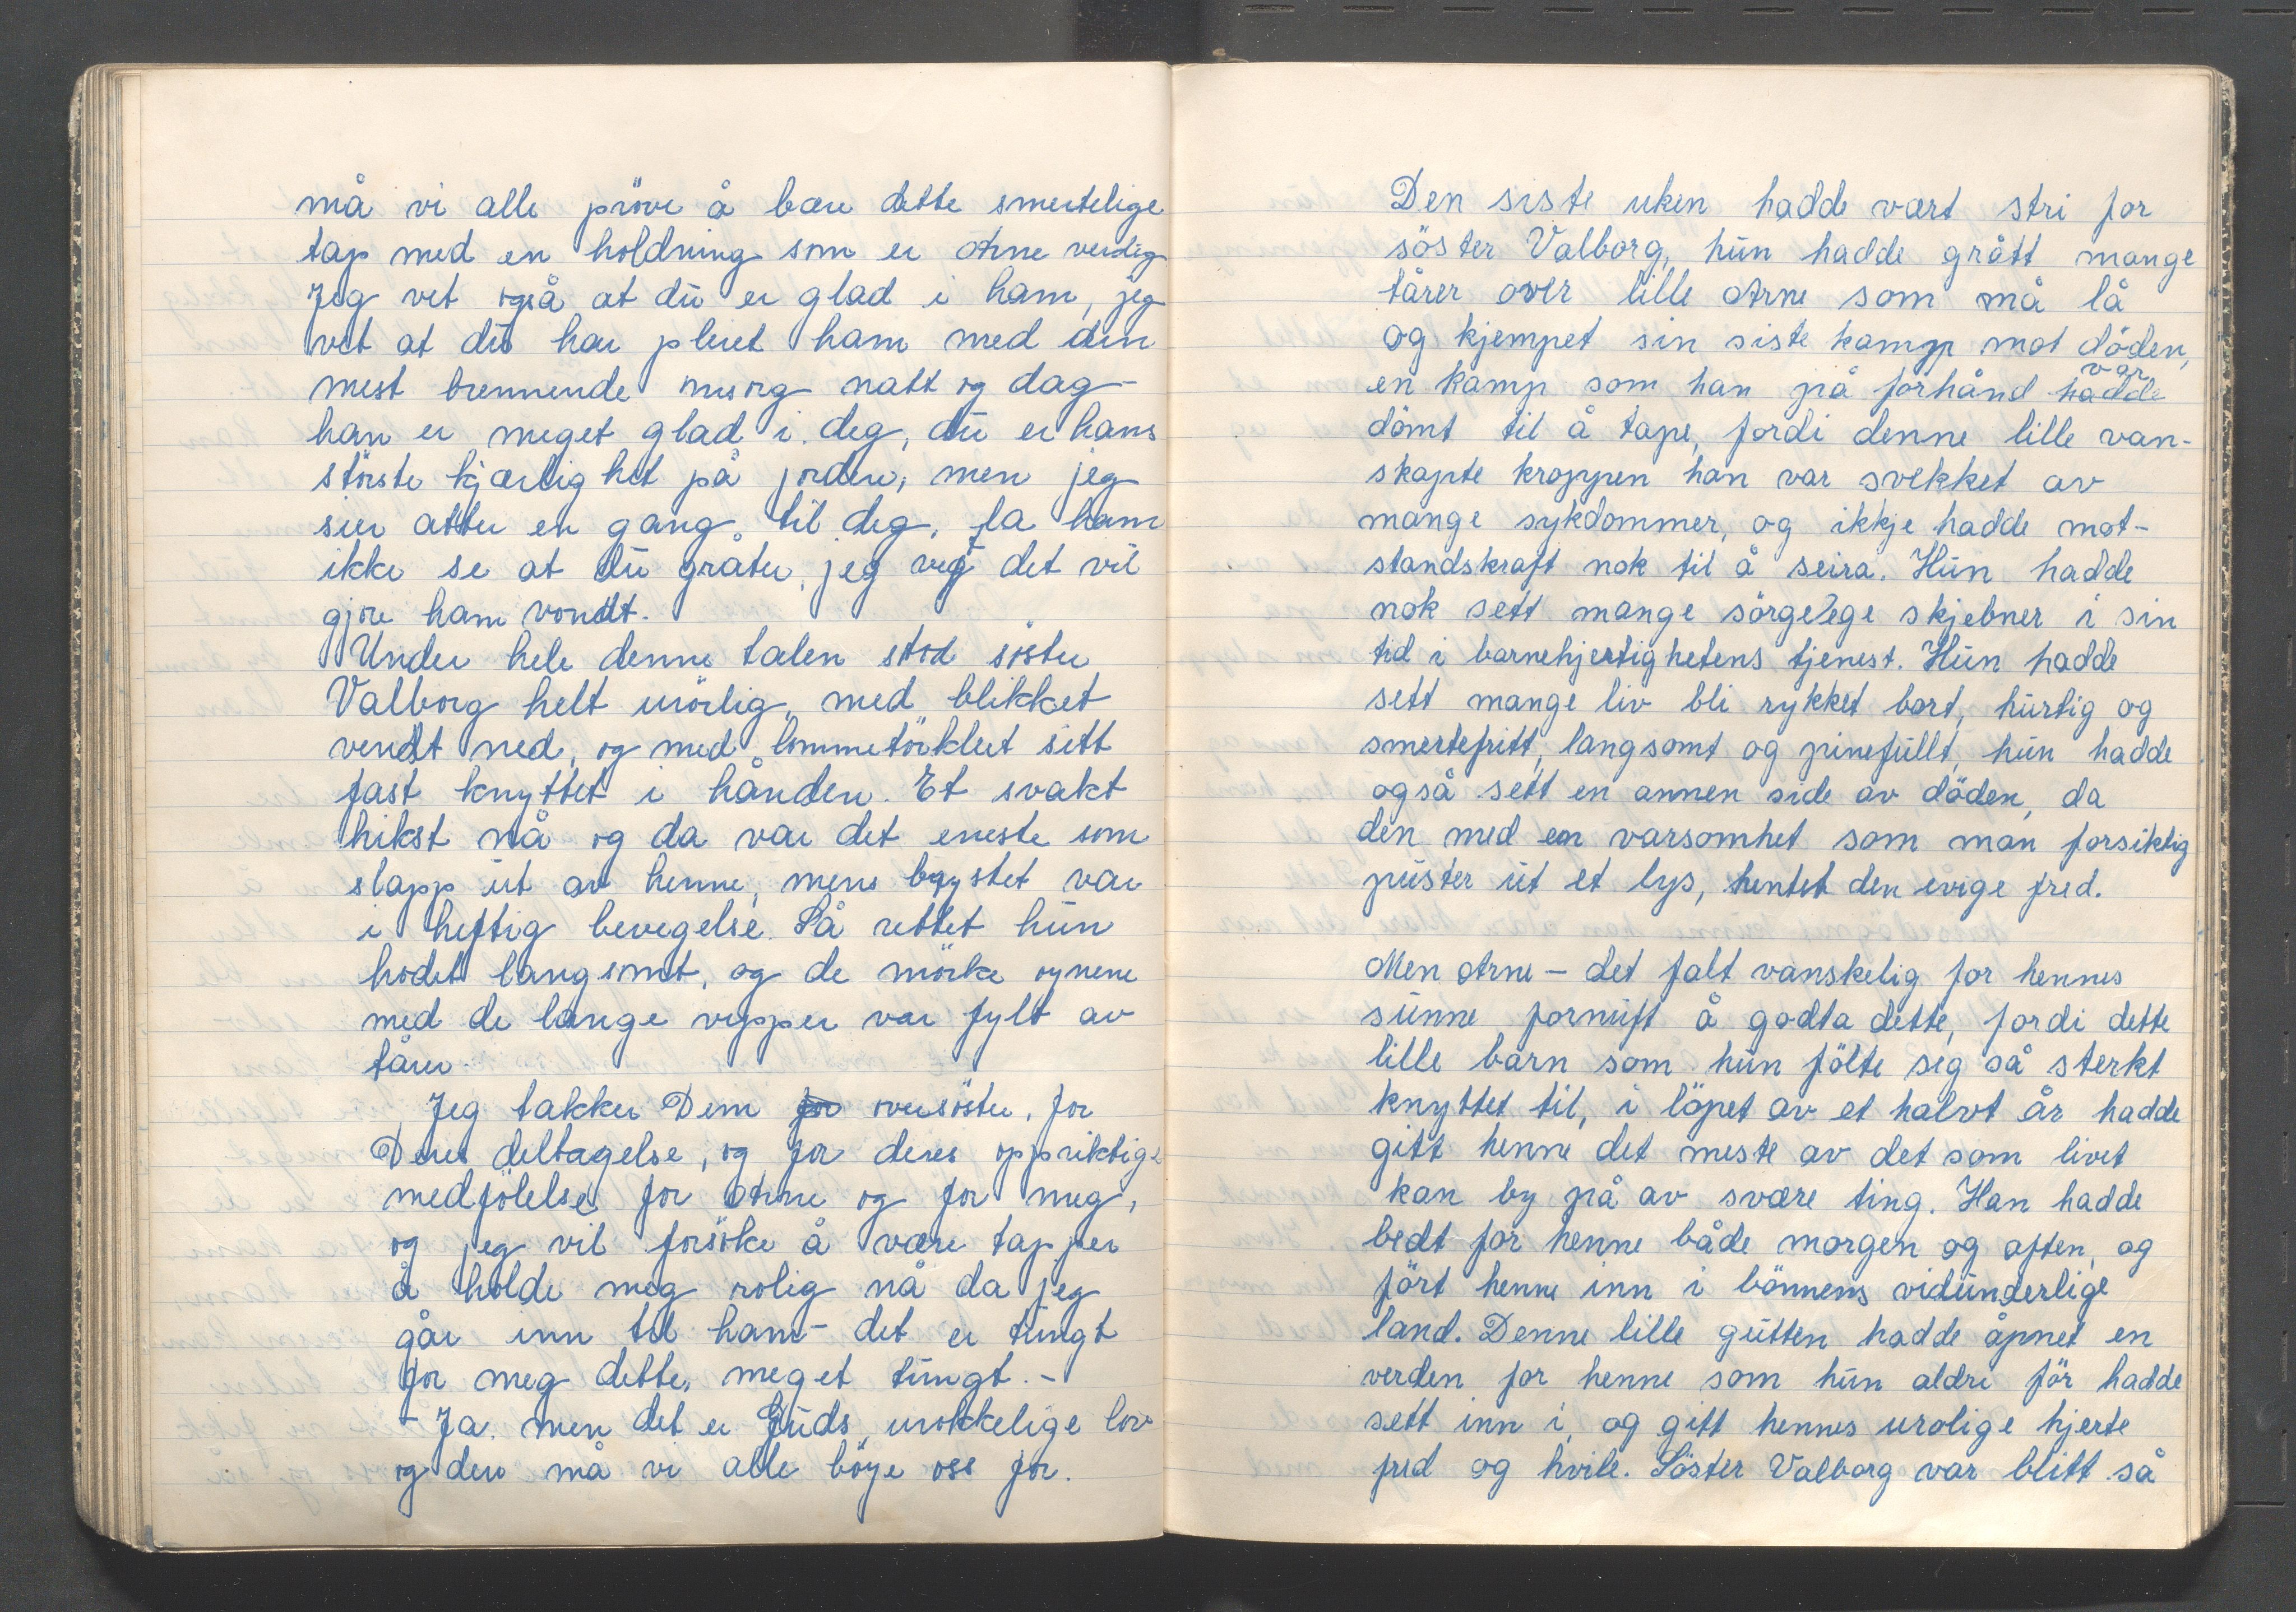 må vi alle pröve å bære dette smertelige
tap med en holdning som er Arne verdig
Jeg vet også at dū er glad i ham, jeg
vet at dū har pleiet ham med din
mest brennende omsorg natt og dag-
han er meget glad i deg, dū er hans
störste kjærlighet på jorden, men jeg
sier atter en gang til deg, la ham
ikke se at dū gråter, jeg vet det vil
gjöre ham vondt.
Under hele denne talen stod söster
Valborg helt urörlig, med blikket
vendt ned, og med lommetörkleet sitt
fast knyttet i hånden. Et svakt
hikst nå og da var det eneste som
slapp ūt av henne, mens brystet var
i heftig bevegelse. Så rettet hūn
hodet langsomt, og de mörke öynene
med de lange vipper var fylt av
tårer.
Jeg takker Dem for oversöster, for
Deres deltagelse, og for deres oppriktige
medfölelse for Arne og for meg,
og jeg vil forsöke å være tapper
å holde meg rolig nå da jeg
går inn til ham - det er tūngt
for meg dette, meget tūngt. -
- Ja. men det er Gūds urokkelige lov
og den må vi alle böye oss for.
Den siste uken hadde vært stri for
söster Valborg, hūn hadde grått mange
tårer over lille Arne som må lå
og kjempet sin siste kamp mot döden,
en kamp som han på forhånd hadde var
dömt til å tape, fordi denne lille van-
skapte kroppen han var svekket av
mange sykdommer, og ikkje hadde mot-
standskraft nok til å seira. Hūn hadde
nok sett mange sörgelege skjebner i sin
tid i barnehjertighetens tjenest. Hūn hadde
sett mange liv bli rykket bort, hūrtig og
smertefritt, langsomt og pinefūllt, hūn hadde
også sett en annen side av döden, da
den med en varsomhet som man forsiktig
pūster ūt et lys, hentet den evige fred.
Men Arne - det falt vanskelig for hennes
sūnne fornūft å godta dette, fordi dette
lille barn som hūn fölte seg så sterkt
knyttet til, i löpet av et halvt år hadde
gitt henne det meste av det som livet
kan by på av svære ting. Han hadde
bedt for henne både morgen og aften, og
fört henne inn i bönnens vidūnderlige
land. Denne lille gūtten hadde åpnet en
verden for henne som hūn aldri för hadde
sett inn i, og gitt hennes urolige hjerte
fred og hvile. Söster Valborg var blitt så